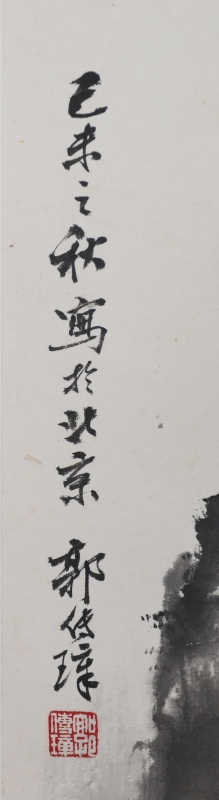 己未之秋寫於北京 郭傳璋
郭傳璋